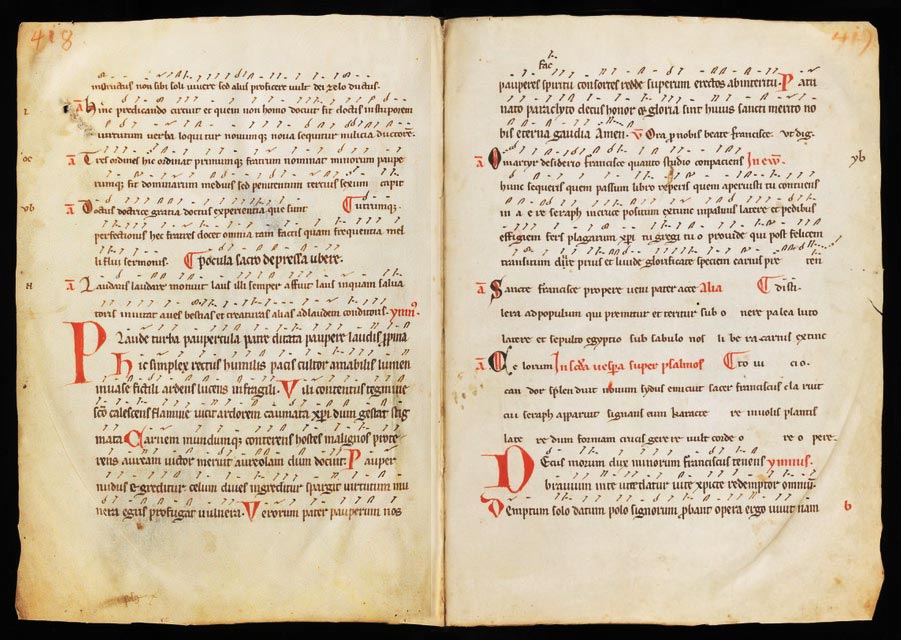 418
instructus non sibi soli vivere sed aliis proficere vult dei zelo ductus.
a hinc predicando circuit et quem non homo docuit fit doctis in stuporem
virtutum verba loquitur novumq; nova sequitur militia ductorē.
a Tres ordines hic ordinat primumq; fratrum nominat minorum paupe
rumq; fit dominarum medius sed penitentum tercius sexum capit
a Doctus doctrice gratia doctus experientia que sunt utrumq;.
perfectionis hec fratres docet omnia tam factis quam frequentia mel
liflui sermonis. pocula sacro depressa ubere.
a Laudans laudare monuit laus illi semper affuit laus inquam salva
toris invitat aves bestias et creaturas alias ad laudem conditoris. ymn9.
Plaude turba paupercula patre ditata paupere laudis
hic simplex rectus humilis pacis cultor amabilis lumen
in vase fictili ardens lucens in fragili. Vili contentus tegmine
scō calescens flamine vicit ardorem caumata xpi dum gestat stig
mata Carnem mundumq; conterens hostes malignos prote
rens auream victor meruit aureolam dum docuit. Pauper
nudus egreditur celum dives ingreditur spargit virtutum mu
nera egris profugat vulnera. Verorum pater pauperum nos
419
fac
pauperes spiritu consortes redde superum erectos ab inferius. P atri
nato paraclyto decus honor et gloria sint huius sancti merito no
bis eterna gaudia Amen. v Ora p nobis beate francisce. ut dig.
a O martyr desiderio francisce quanto studio compaciens In ew.
hunc sequeris quem passum libro reperis quem aperuisti tu contuens
in a e re seraph in cruce positum ex tunc in palmis latere et pedibus
effigiem fers plagarum xpi tu gregi tuo provide qui post felicem
transitum dire prius et livide glorificate speciem carnis pre ten
a Sancte francisce propere veni pater acce Alia disti.
lera ad populum qui premitur et teritur sub o nere palea luto
latere et sepulto egyptio sub sabulo nos li be ra carnis extinc
a Ce lorum In scda vespa super psalmos to vi cio.
can dor splen duit novum sydus emicuit sacer franciscus cla ruit
cui seraph apparuit signans eum karacte re in volis plantis
late re dum formam crucis gere re vult corde o re o pere.
Decus morum dux minorum franciscus tenens ymnus.
bravium in te vice datur vite xpicte redemptor omniū.
Demptum solo datum polo signorum pbant opera ergo vivit nam